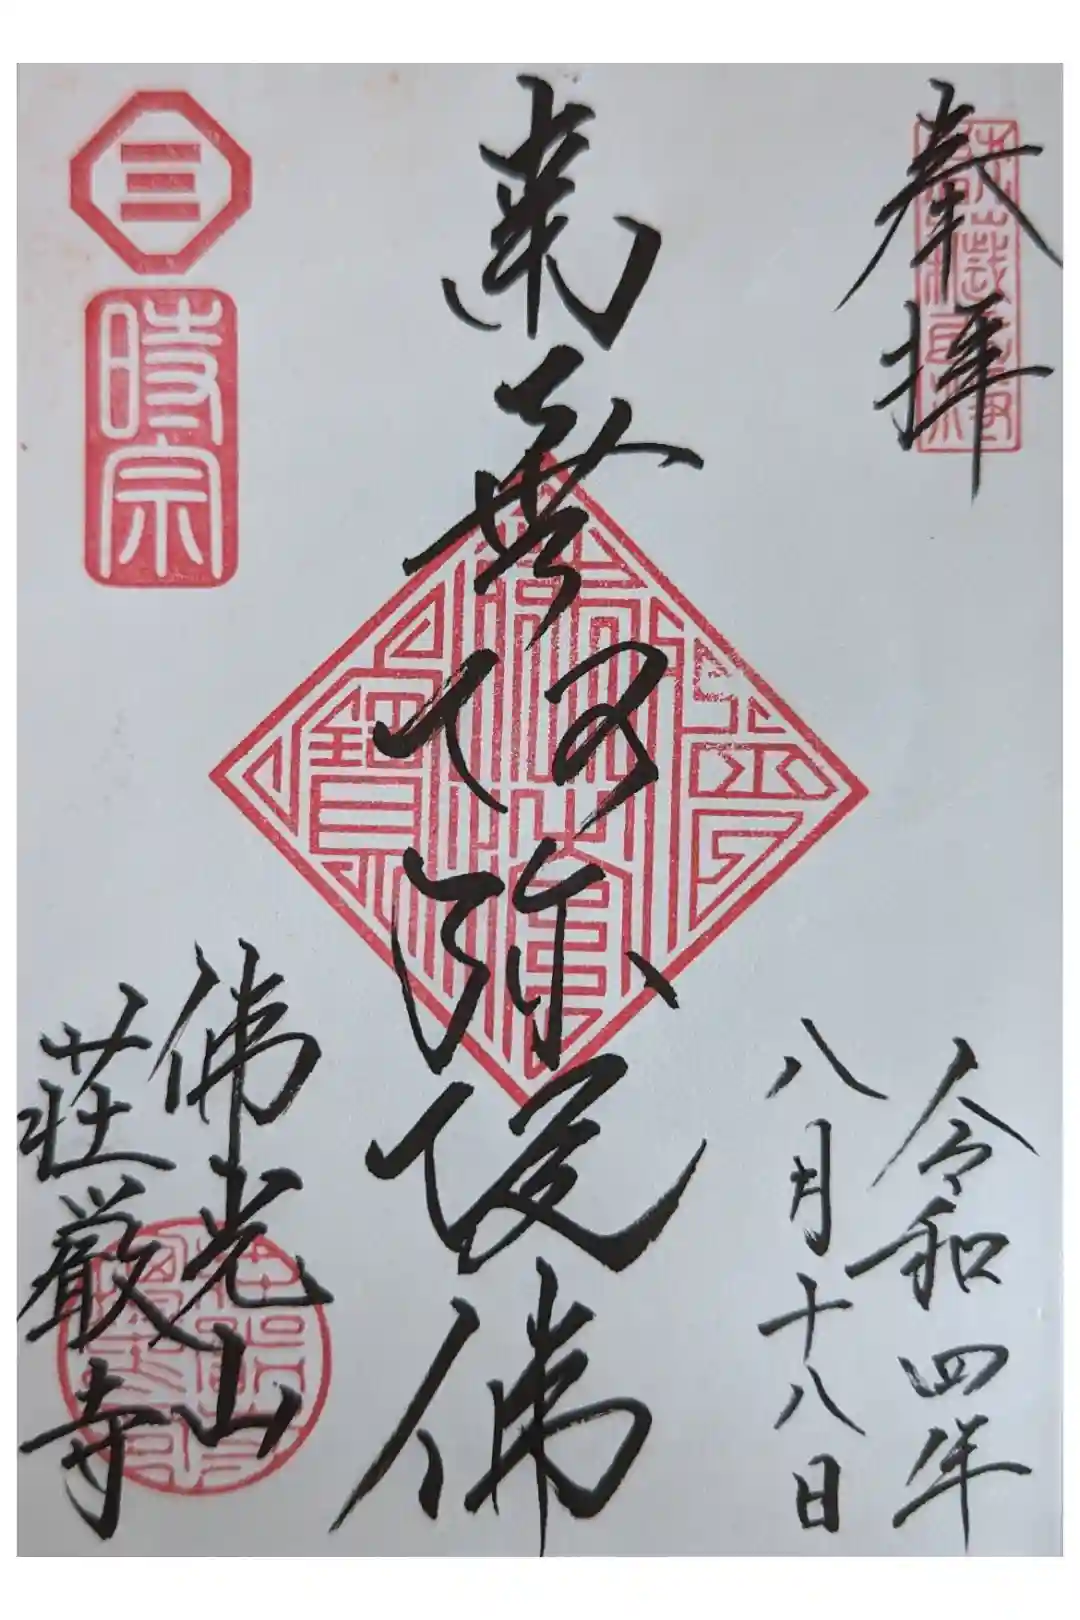 奉拝
令和四年
八月十八日
南無阿弥陀佛
佛光山
荘厳寺
時宗